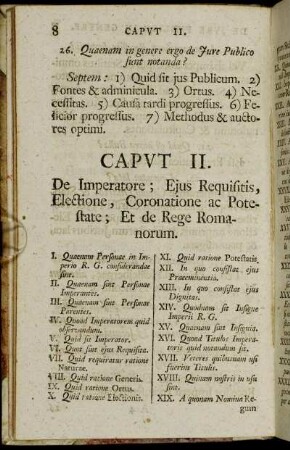 8 CAPVT II.
26. Quaenam in genere ergo de Jure Publico
sunt notanda?
Septem: 1) Quid sit jus Publicum. 2)
Fontes & adminicula. 3) Ortus. 4) Ne-
cessitas. 5) Causa tardi progressus. 6) Fe-
licior progressus. 7) Methodus & aucto-
res optimi.
CAPVT II.
De Imperatore; Ejus Requisitis,
Electione, Coronatione ac Pote-
state; Et de Rege Roma-
norum.
I. Quaenam Personae in Im-
perio R. G. considerandae
sint.
II. Quaenam sint Personae
Imperantes.
III. Quaenam sint Personae
Parentes.
IV. Quoad Imperatorem quid
observandum.
V. Quid sit Imperator.
VI. Quae sint ejus Requisita.
VII. Quid requiratur ratione
Naturae.
VIII. Quid ratione Generis.
IX. Quid ratione Ortus.
X. Quid ratione Electionis.
XI. Quid ratione Potestatis.
XII. In quo consistat ejus
Praeeminentia.
XIII. In quo consistat ejus
Dignitas.
XIV. Quodnam sit Insigne
Imperii R. G.
XV. Quaenam sint Insignia.
XVI. Quoad Titulos Impera-
toris quid notandum sit.
XVII. Veteres quibusnam usi
fuerint Titulis.
XVIII. Quinam nostris in usu
sint.
XIX. A quonam Nomina Re-
gium